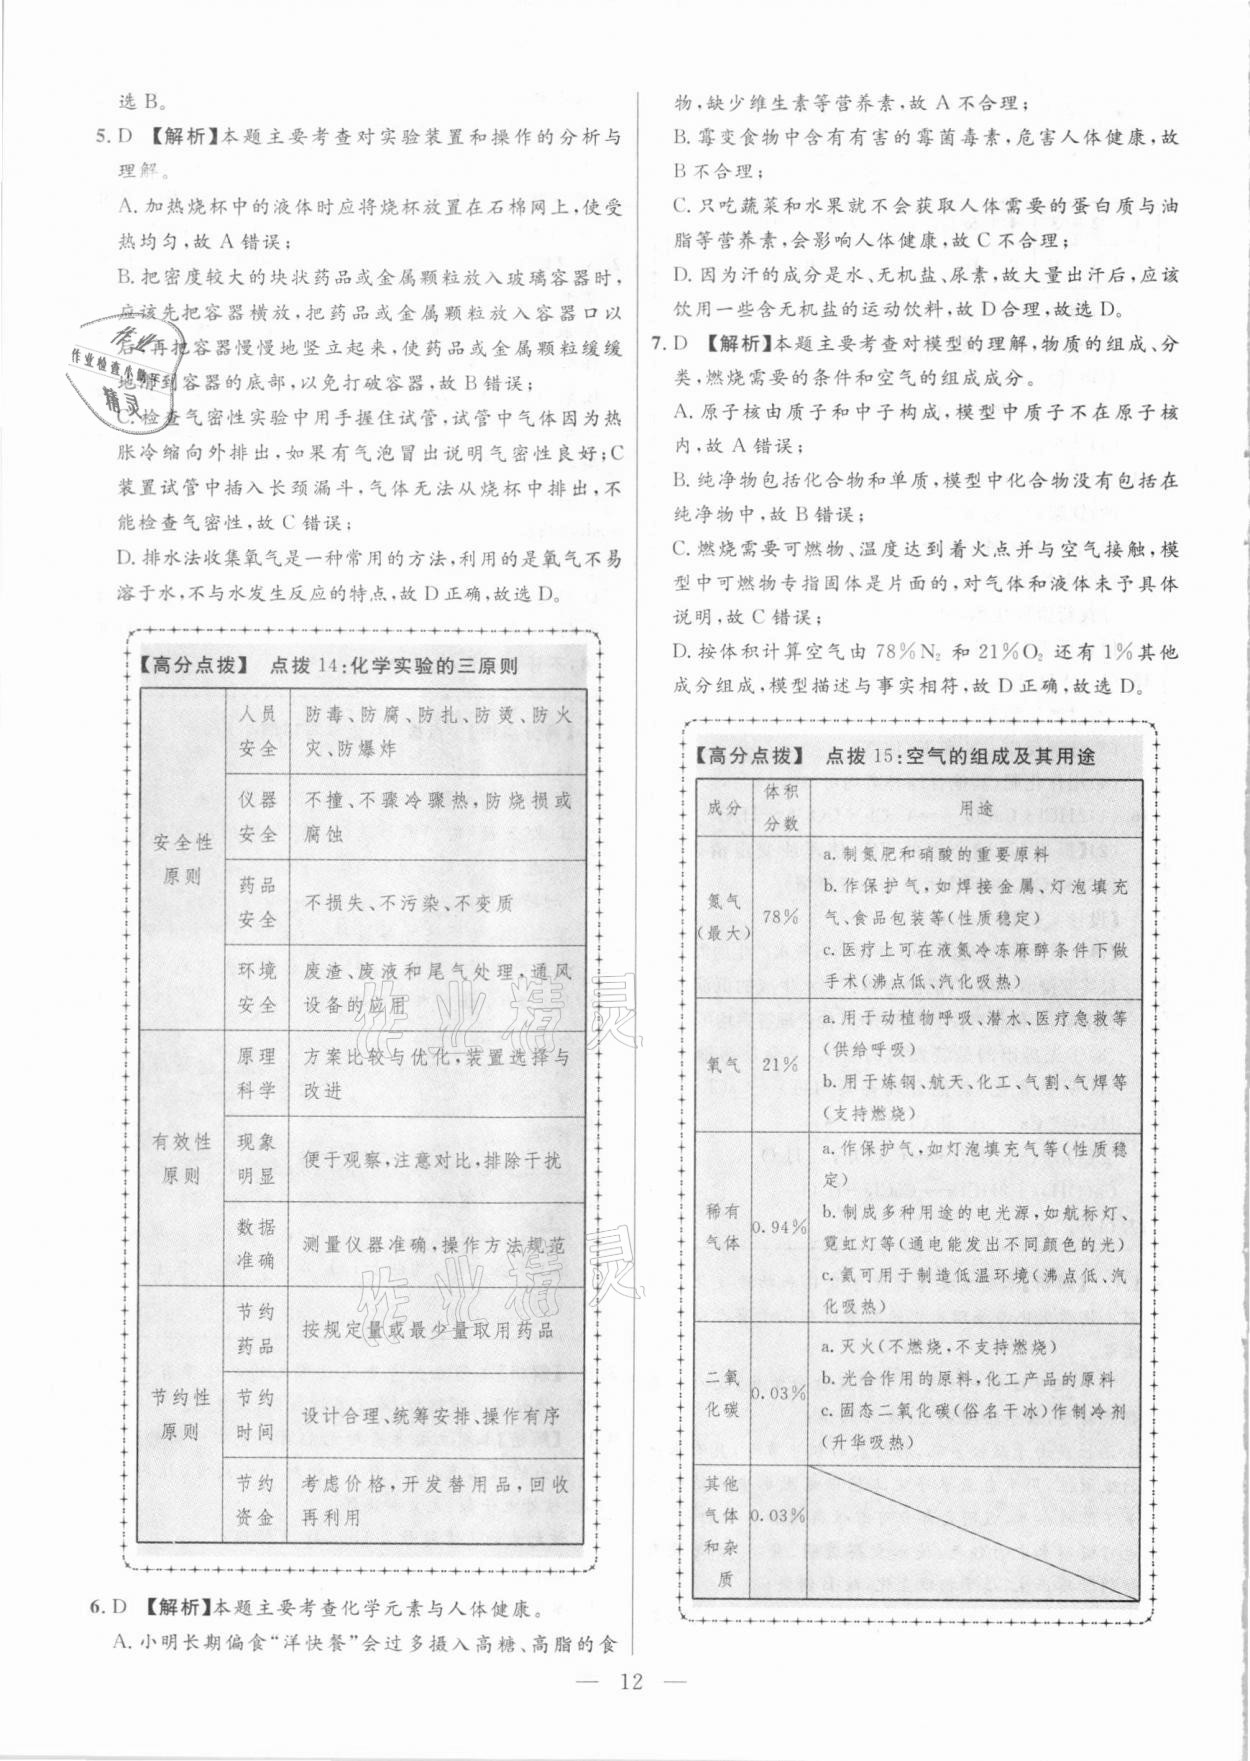 选B。
5. D 【解析】本题主要考查对实验装置和操作的分析与
理解。
A. 加热烧杯中的液体时应将烧杯放置在石棉网上,使受
热均匀,故A错误;
B. 把密度较大的块状药品或金属颗粒放入玻璃容器时,
应该先把容器横放,把药品或金属颗粒放入容器口以
后,再把容器慢慢地竖立起来,使药品或金属颗粒缓缓
地滑到容器的底部,以免打破容器,故B错误;
C. 检查气密性实验中用手握住试管,试管中气体因为热
胀冷缩向外排出,如果有气泡冒出说明气密性良好;C
装置试管中插入长颈漏斗,气体无法从烧杯中排出,不
能检查气密性,故C错误;
D. 排水法收集氧气是一种常用的方法,利用的是氧气不易
溶于水,不与水发生反应的特点,故D正确,故选D。
【高分点拨】 点拨14:化学实验的三原则
安全性
原则
人员
安全
防毒、防腐、防扎、防烫、防火
灾、防爆炸
仪器
安全
不撞、不骤冷骤热,防烧损或
腐蚀
药品
安全
不损失、不污染、不变质
环境
安全
废渣、废液和尾气处理,通风
设备的应用
有效性
原则
原理
科学
方案比较与优化,装置选择与
改进
现象
明显
便于观察,注意对比,排除干扰
数据
准确
测量仪器准确,操作方法规范
节约性
原则
节约
药品
按规定量或最少量取用药品
节约
时间
设计合理、统筹安排、操作有序
节约
资金
考虑价格,开发替用品,回收
再利用
6. D 【解析】本题主要考查化学元素与人体健康。
A. 小明长期偏食“洋快餐”会过多摄入高糖、高脂的食
物,缺少维生素等营养素,故A不合理;
B. 霉变食物中含有有害的霉菌毒素,危害人体健康,故
B不合理;
C. 只吃蔬菜和水果就不会获取人体需要的蛋白质与油
脂等营养素,会影响人体健康,故C不合理;
D. 因为汗的成分是水、无机盐、尿素,故大量出汗后,应该
饮用一些含无机盐的运动饮料,故D合理,故选D。
7. D 【解析】本题主要考查对模型的理解,物质的组成、分
类,燃烧需要的条件和空气的组成成分。
A. 原子核由质子和中子构成,模型中质子不在原子核
内,故A错误;
B. 纯净物包括化合物和单质,模型中化合物没有包括在
纯净物中,故B错误;
C. 燃烧需要可燃物、温度达到着火点并与空气接触,模
型中可燃物专指固体是片面的,对气体和液体未予具体
说明,故C错误;
D. 按体积计算空气由78%N₂和21%O₂还有1%其他
成分组成,模型描述与事实相符,故D正确,故选D。
【高分点拨】 点拨15:空气的组成及其用途
成分
体积
分数
用途
氮气
(最大)
78%
a. 制氮肥和硝酸的重要原料
b. 作保护气,如焊接金属、灯泡填充
气、食品包装等(性质稳定)
c. 医疗上可在液氮冷冻麻醉条件下做
手术(沸点低、汽化吸热)
氧气
21%
a. 用于动植物呼吸、潜水、医疗急救等
(供给呼吸)
b. 用于炼钢、航天、化工、气割、气焊等
(支持燃烧)
稀有
气体
0.94%
a. 作保护气,如灯泡填充气等(性质稳
定)
b. 制成多种用途的电光源,如航标灯、
霓虹灯等(通电能发出不同颜色的光)
c. 氦可用于制造低温环境(沸点低、汽
化吸热)
二氧
化碳
0.03%
a. 灭火(不燃烧、不支持燃烧)
b. 光合作用的原料,化工产品的原料
c. 固态二氧化碳(俗名干冰)作制冷剂
(升华吸热)
其他
气体
和杂
质
0.03%
— 12 —
作业
作业检查小助手
精灵
作业精灵
作业精灵